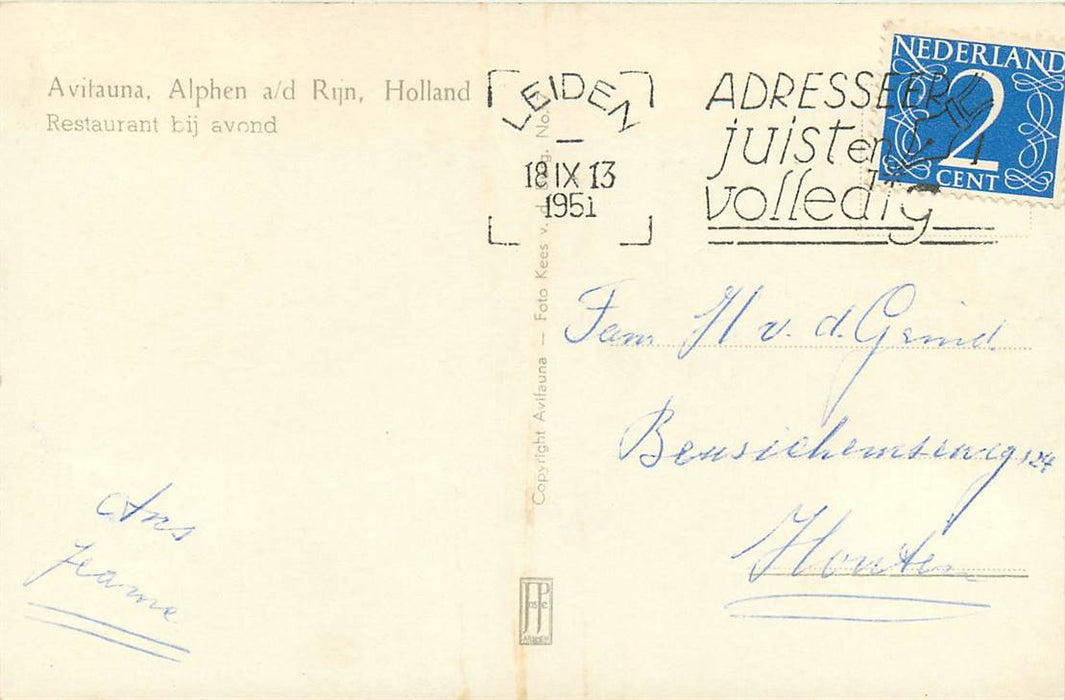 Avifauna, Alphen a/d Rijn, Holland
Restaurant bij avond
LEIDEN
18 IX 13
1951
ADRESSEER
juist en
volledig
NEDERLAND
2
CENT
Copyright Avifauna — Foto Kees v. d.
Fam H v. d. Grind
Beusichemseweg 124
Houten
Ans
Jeanne
JosPe
ARNHEM